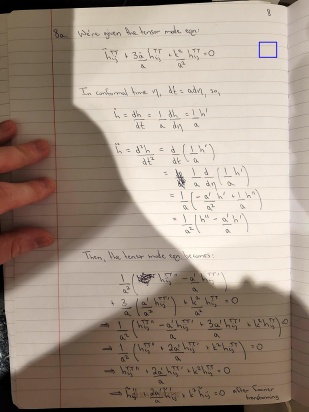 8
8a. We're given the tensor mode eqn:
ḧᵢⱼᵀᵀ + 3ȧ/a ḣᵢⱼᵀᵀ + k²/a² hᵢⱼᵀᵀ = 0
In conformal time η, dt = adη, so,
ḣ = dh/dt = 1/a dh/dη = 1/a h'
ḧ = d²h/dt² = d/dt (1/a h')
= 1/a d/dη (1/a h')
= 1/a (-a'/a² h' + 1/a h'')
= 1/a² (h'' - a'/a h')
Then, the tensor mode eqn becomes:
1/a² (hᵢⱼᵀᵀ'' - a'/a hᵢⱼᵀᵀ')
+ 3/a (a'/a² hᵢⱼᵀᵀ') + k²/a² hᵢⱼᵀᵀ = 0
⇒ 1/a² (hᵢⱼᵀᵀ'' - a'/a hᵢⱼᵀᵀ' + 3a'/a hᵢⱼᵀᵀ' + k² hᵢⱼᵀᵀ) = 0
⇒ 1/a² (hᵢⱼᵀᵀ'' + 2a'/a hᵢⱼᵀᵀ' + k² hᵢⱼᵀᵀ) = 0
⇒ hᵢⱼᵀᵀ'' + 2a'/a hᵢⱼᵀᵀ' + k² hᵢⱼᵀᵀ = 0
⇒ h̃ᵢⱼᵀᵀ'' + 2a'/a h̃ᵢⱼᵀᵀ' + k² h̃ᵢⱼᵀᵀ = 0 after Fourier
transforming